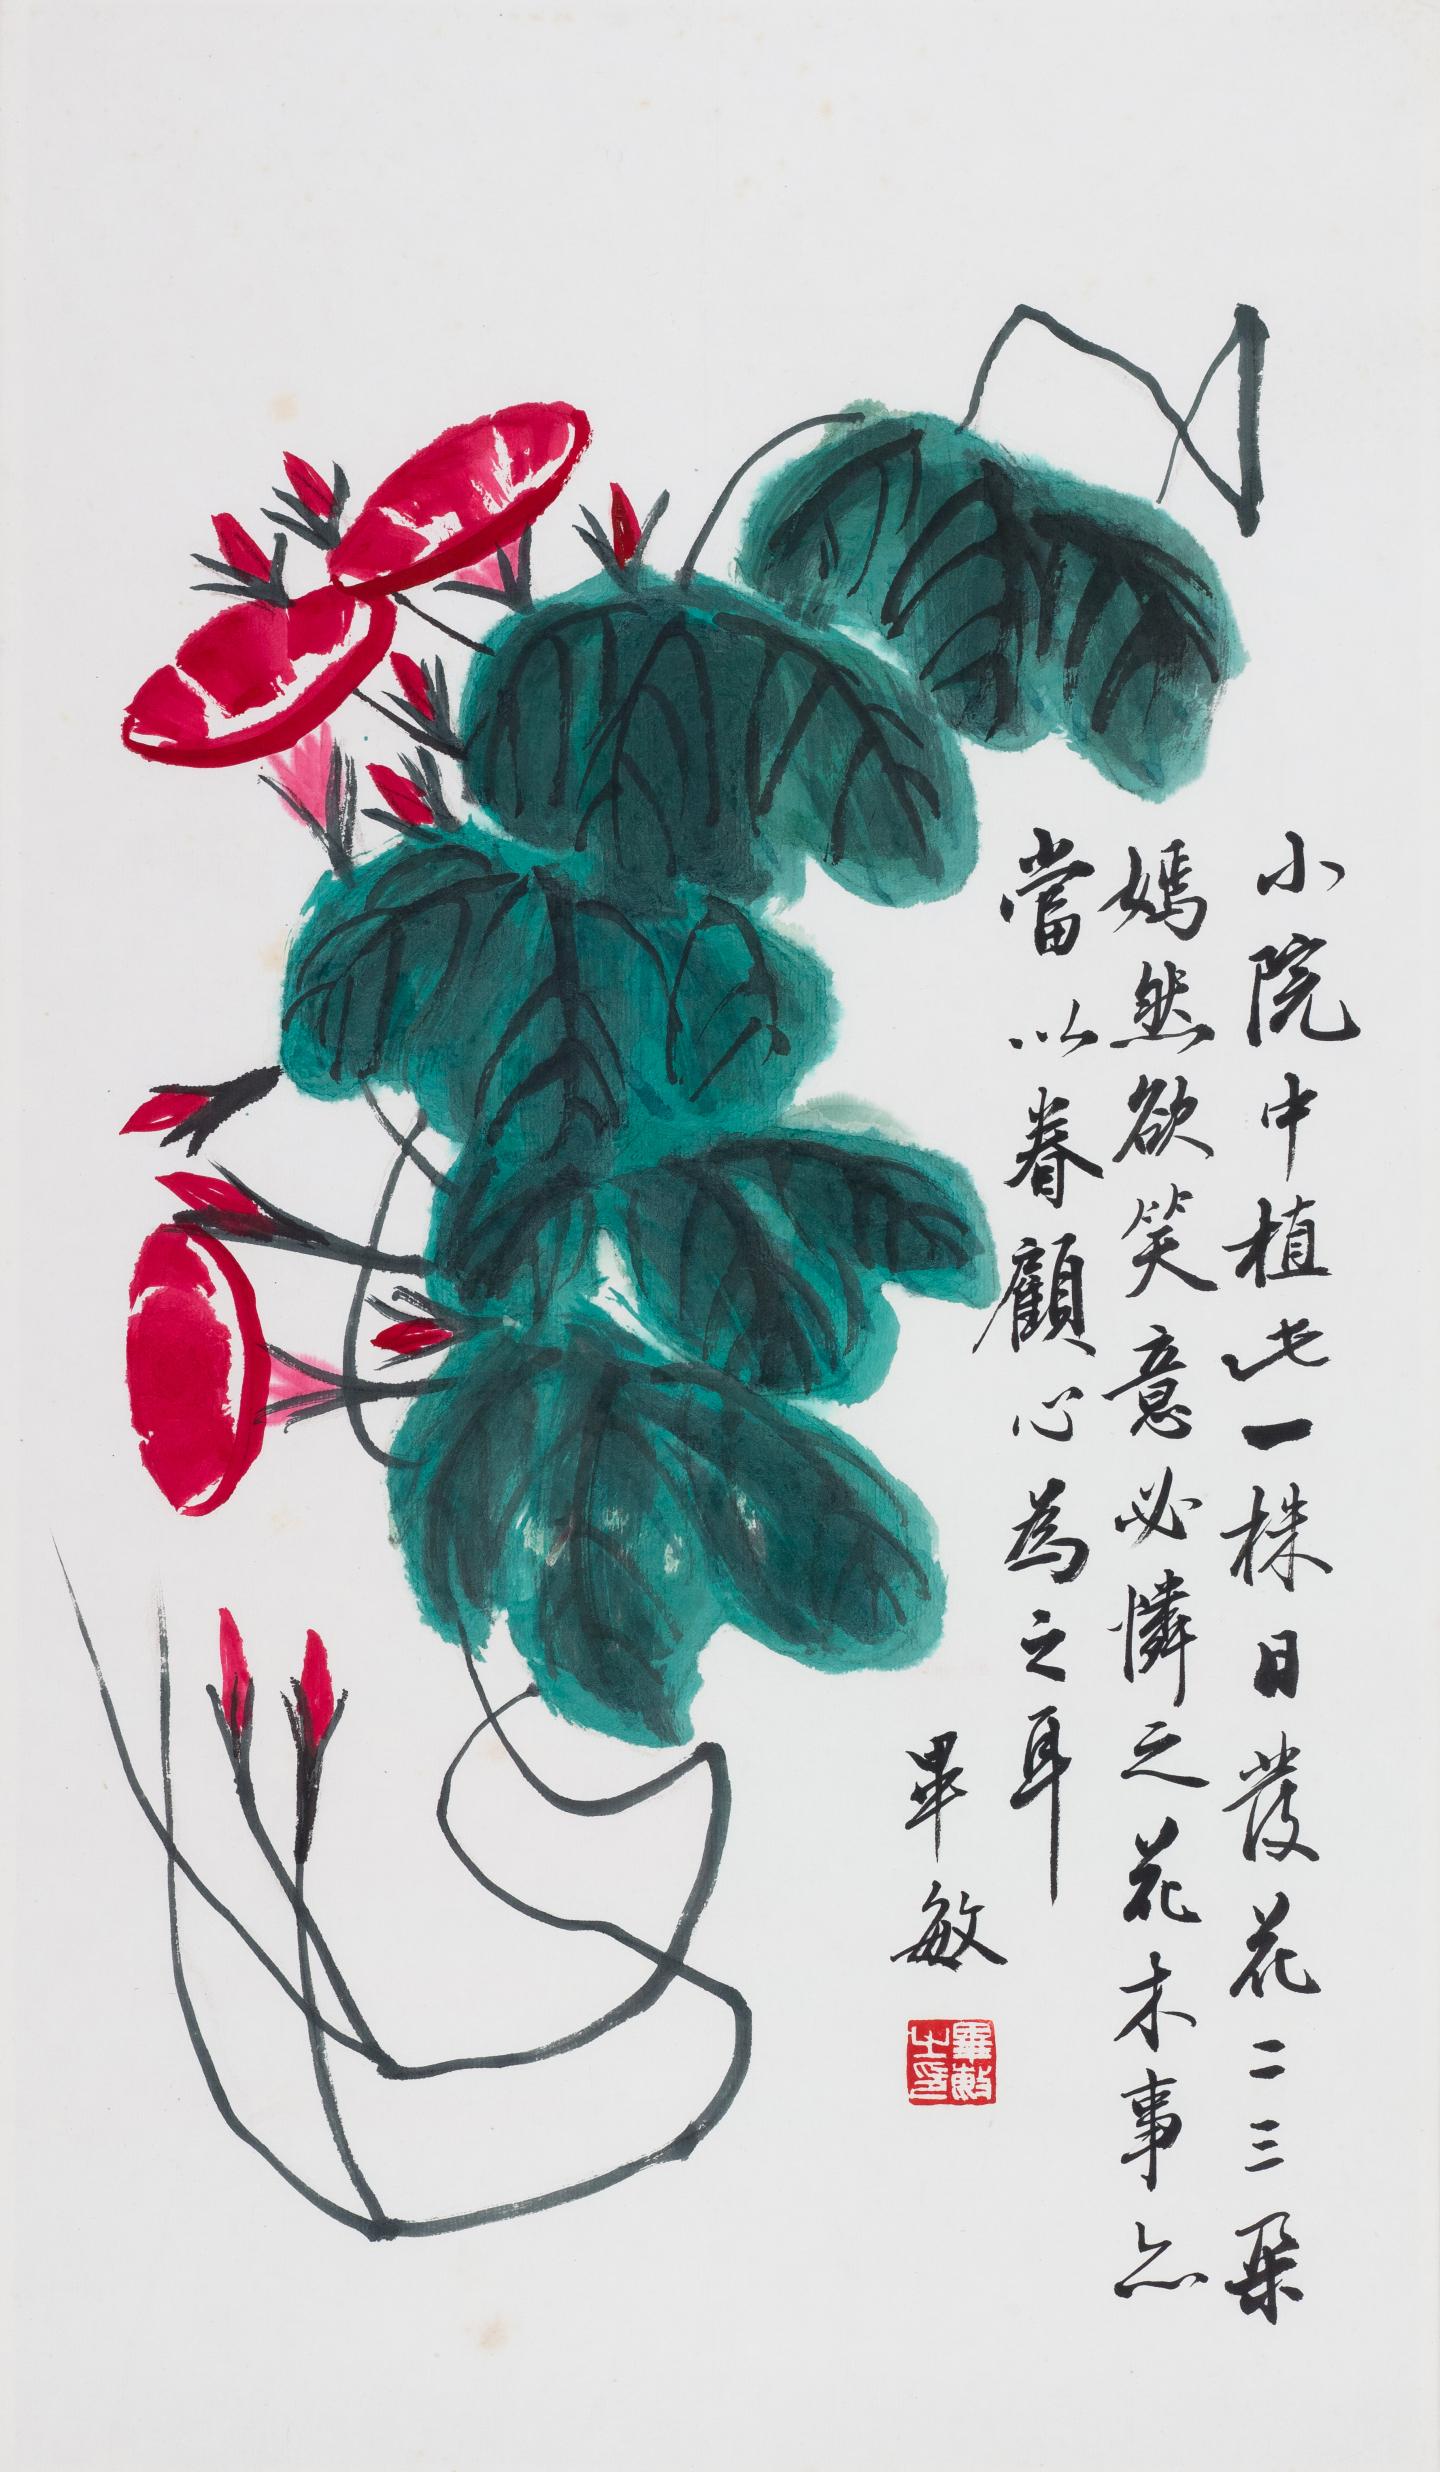 小院中植此一株日發花二三朵
嫣然欲笑意必憐之花木事亦
當以眷顧心為之耳
畢敏
畢敏之印